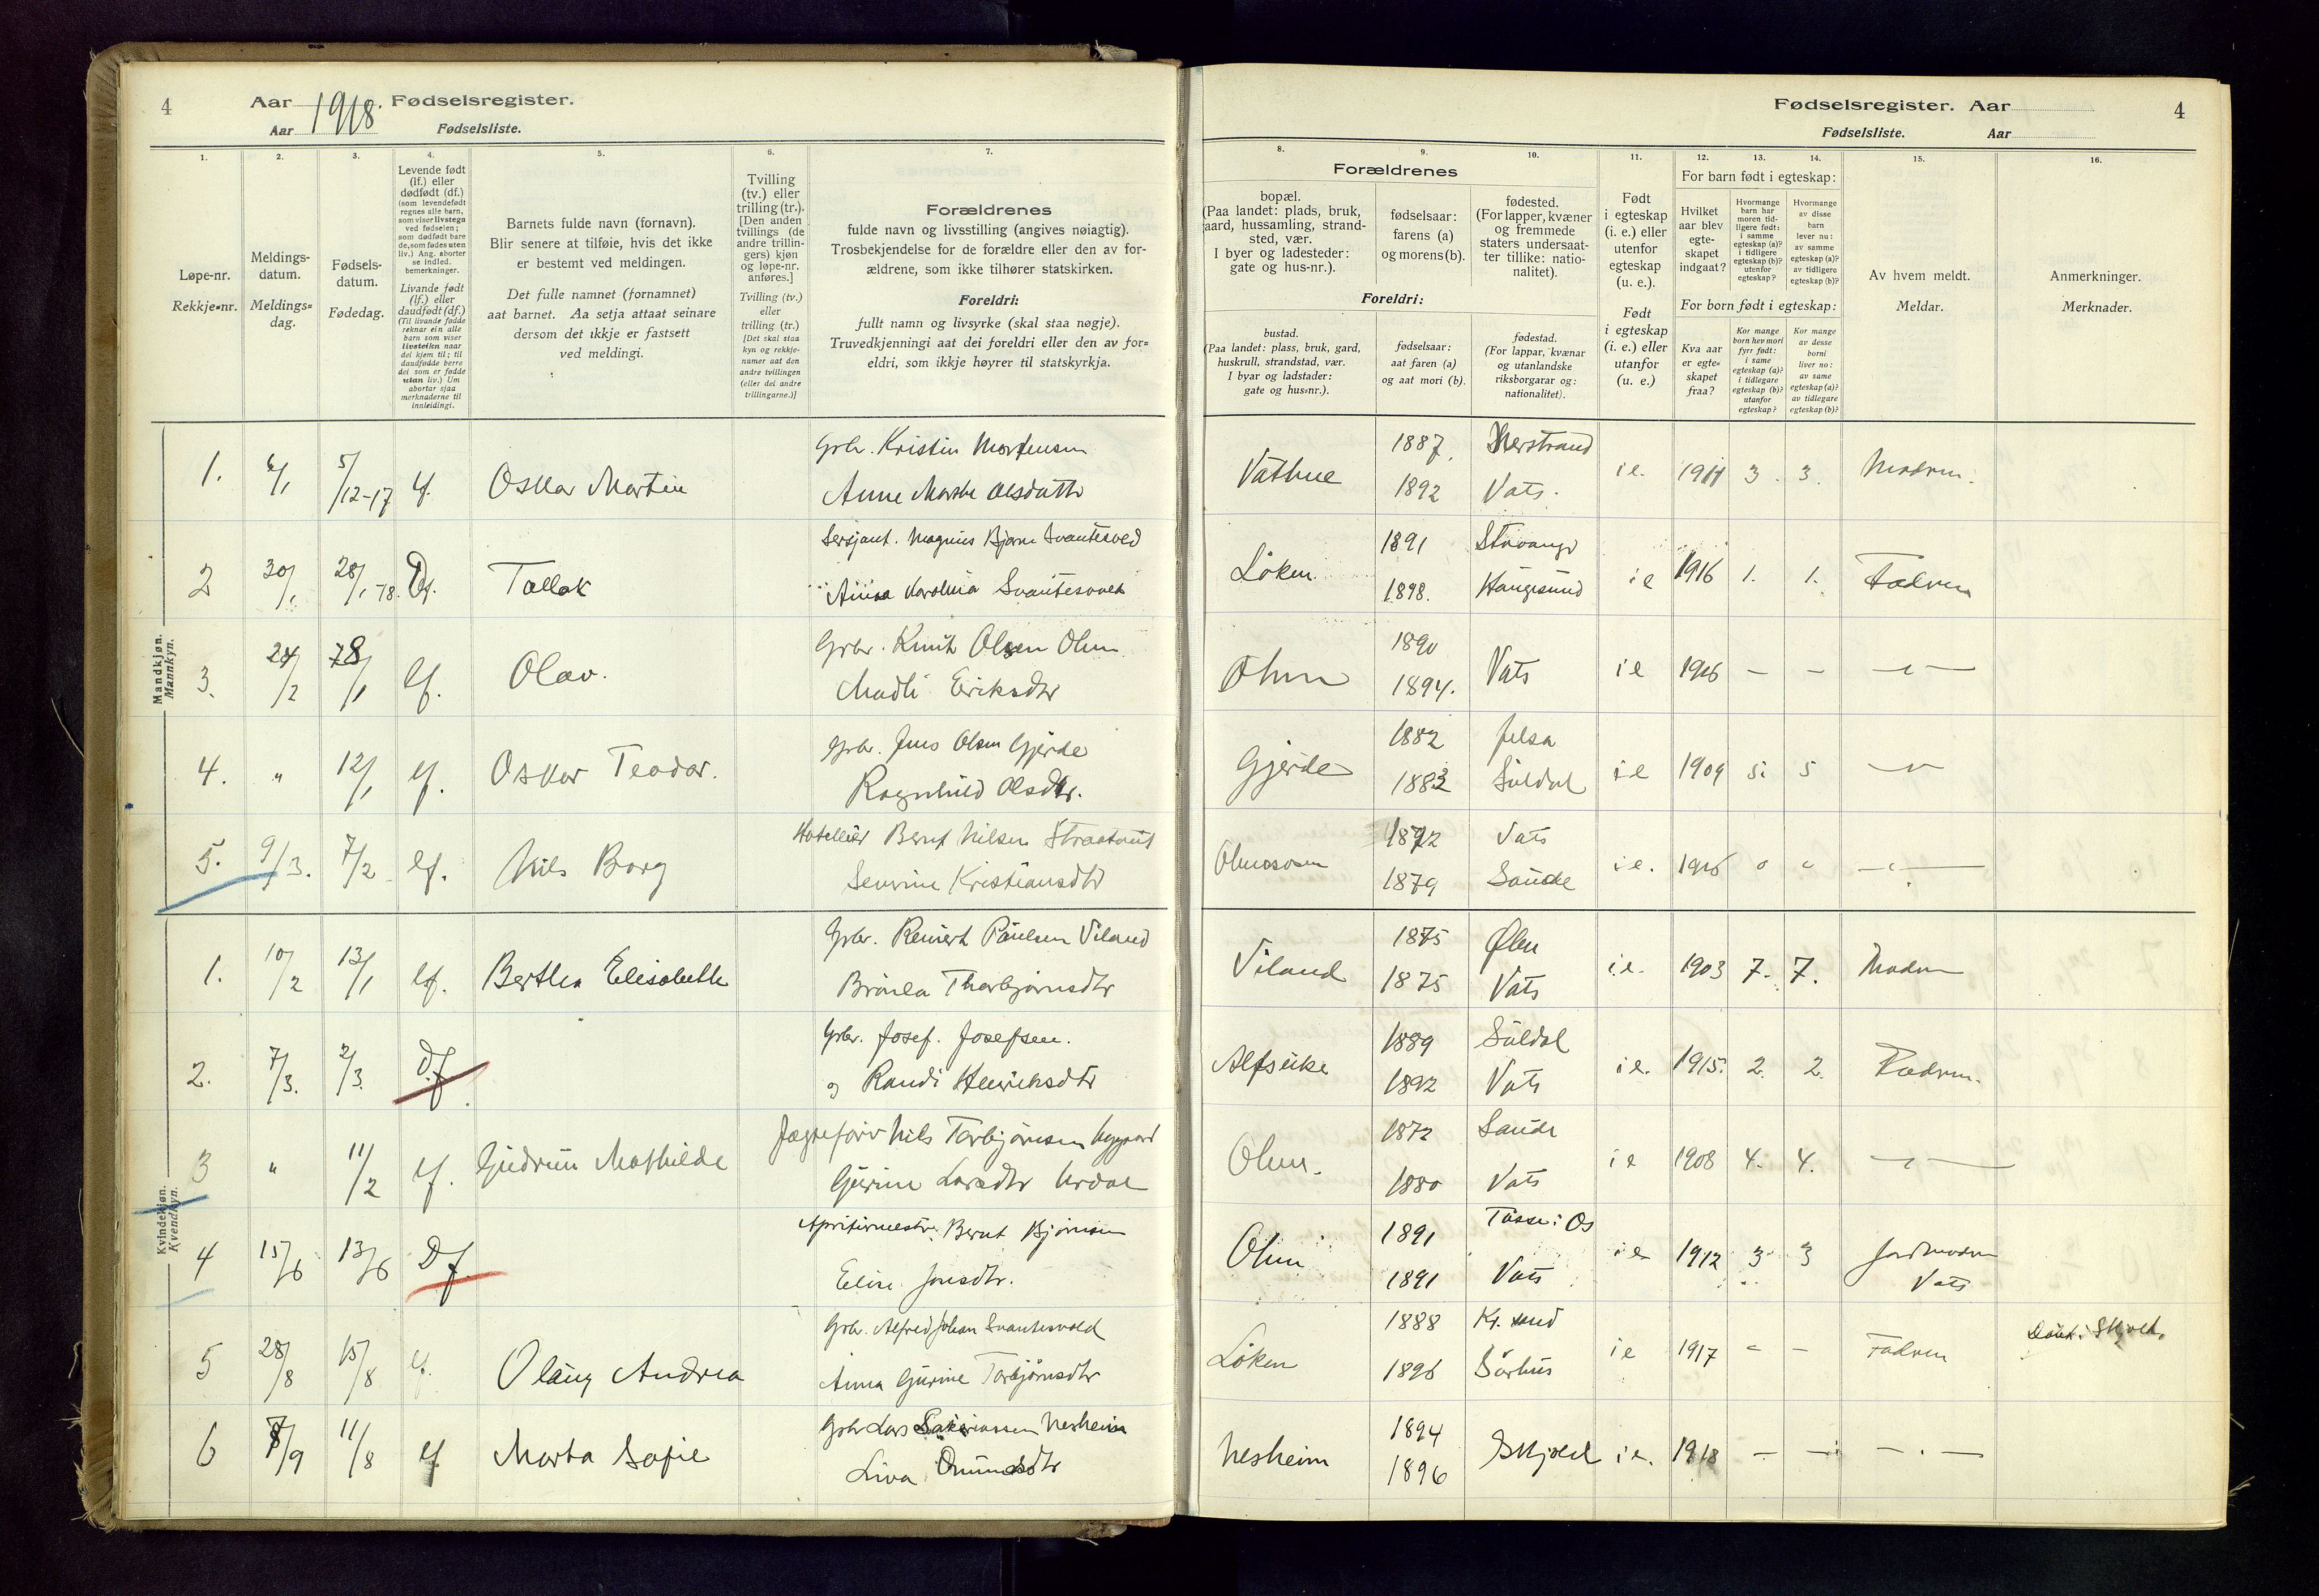 4 Aar 1918. Fødselsregister.
Aar Fødselsliste.
Fødselsregister. Aar 4
Fødselsliste. Aar
1. 2. 3. 4. 5. 6. 7. 8. 9. 10. 11. 12. 13. 14. 15. 16.
Løpe-nr.
Rekkje=nr.
Meldings-
datum.
Meldings=
dag.
Fødsels-
datum.
Fødedag.
Levende født
(lf.) eller
dødfødt (df.)
(som levendefødt
regnes alle barn,
som viser livstegn
ved fødselen;
som dødfødt bare
de, som fødes uten
liv.) Ang. aborter
se indled.
bemerkninger.
Livande født
(lf.) eller
daudfødt (df.)
(Til livande fødde
reknar ein alle
barn som viser
livsteikn naar
dei kjem til; til
daudfødde berre
dei som er fødde
utan liv.) Um
abortar sjaa
merknaderne til
innleidingi.
Barnets fulde navn (fornavn).
Blir senere at tilføie, hvis det ikke
er bestemt ved meldingen.
Det fulle namnet (fornamnet)
aat barnet. Aa setja attaat seinare
dersom det ikkje er fastsett
ved meldingi.
Tvilling
(tv.) eller
trilling (tr.).
[Den anden
tvillings (de
andre trillin-
gers) kjøn
og løpe-nr.
anføres.]
Tvilling (tv.)
eller
trilling (tr.)
[Det skal staa
kyn og rekkje-
numer aat den
andre tvillingen
(eller dei andre
trillingarne.)]
Forældrenes
fulde navn og livsstilling (angives nøiagtig).
Trosbekjendelse for de forældre eller den av for-
ældrene, som ikke tilhører statskirken.
Foreldri:
fullt namn og livsyrke (skal staa nøgje).
Truvedkjenningi aat dei foreldri eller den av for=
eldri, som ikkje høyrer til statskyrkja.
Forældrenes
bopæl.
(Paa landet: plads, bruk,
gaard, hussamling, strand-
sted, vær.
I byer og ladesteder:
gate og hus-nr.).
fødselsaar:
farens (a)
og morens (b).
fødested.
(For lapper, kvæner
og fremmede
staters undersaat-
ter tillike: natio-
nalitet).
Foreldri:
bustad.
(Paa landet: plass, bruk, gard,
huskrull, strandstad, vær.
I byar og ladstader:
gate og hus=nr.).
fødselsaar:
aat faren (a)
og aat mori (b).
fødestad.
(For lappar, kvænar
og utanlandske
riksborgarar og:
nationalitet).
Født
i egteskap
(i. e.) eller
utenfor
egteskap
(u. e.).
Født
i egteskap
(i. e.) eller
utanfor
(u. e.)
For barn født i egteskap:
Hvilket
aar blev
egte-
skapet
indgaat?
Hvormange
barn har
moren tid-
ligere født:
i samme
egteskap (a)?
i tidligere
egteskap (b)?
utenfor
egteskap?
Hvormange
av disse
barn
lever nu:
av samme
egteskap (a)?
av tidligere
egteskap (b)?
For born født i egteskap:
Kva aar
er egte-
skapet
fraa?
Kor mange
born hev mori
fyrr født:
i same
egteskap (a)?
i tidlegare
egteskap (b)?
utanfor
egteskap?
Kor mange
av desse
borni
liver no:
av same
egteskap (a)?
av tidlegare
egteskap (b)?
Av hvem meldt.
Meldar.
Anmerkninger.
Merknader.
Mandkjøn.
Mannkyn.
1. 6/1 5/12-17 lf. Oskar Martin Grbr. Kristin Mortensen
Anne Marthe Olsdatter
Vathne 1887 Nerstrand
1892 Vats. i e. 1911 3. 3. Modren.
2 30/1 28/1 18. Lf. Tallak Sersjant. Magnus Bjarne Svantesvold
Anna Karolina Svantesvold
Løken 1891 Stavanger
1898. Haugesund i e 1916 1. 1. Fadren
3. 24/2 28/1 lf. Olav. Grbr. Knut Olsen Ohm
Madli Eriksdtr
Ohm 1890
1894. Vats i e 1916 — — — " —
4. " 12/1 lf. Oskar Teodor. Grbr. Jens Olsen Gjerde
Ragnhild Olsdtr.
Gjerde 1882 Jelsa
1883 Suldal i e 1909 5. 5 — " —
5. 9/3. 7/2 lf. Nils Borg Hotelleier Bernt Nilsen
Severine Kristiansdtr
1872 Vats
1879 Saude i e. 1916 0 " — " —
Kvindekjøn.
Kvendkyn.
1. 10/2 13/1 lf. Bertha Elisabeth Grbr. Reinert Paulsen Viland
Thorbjørnsdtr
Viland 1875 Ølen
1875 Vats i e. 1903 7. 7. Modren
2. 7/3. 2/3. D.f Grbr. Josef. Josefsen.
og Randi Henriksdtr
1889 Suldal
1892 Vats i e. 1915. 2. 2. Fadren.
3 " 11/2 lf. Gudrun Mathilde Nils Torbjørnsen
Gurine Larsdtr
Ohm. 1872 Saude
1880 Vats i e 1908 4. 4. — " —
4 15/6 13/6 Df. Bernt Bjørnsen
Elise Jonsdtr.
Ohm 1891 Os
1891 Vats i e 1912 3 3 Jordmodren
Vats
5 28/8 15/8 lf. Olaug Andrea Grbr. Alfred Johan Svantesvold
Anna Gurine Torbjørnsdtr
Løken 1888 Kr. sund
1896 i e 1917 — — Fadren Døbt i Skjold.
6 7/9 11/8 lf Marta Sofie Grbr Lars Sakariassen Nesheim
Liva Omundsdtr
Nesheim 1894
1896 Skjold i e. 1918 — — — " —